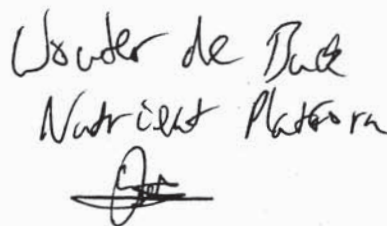 Wouter de Buck
Nutrient Platform